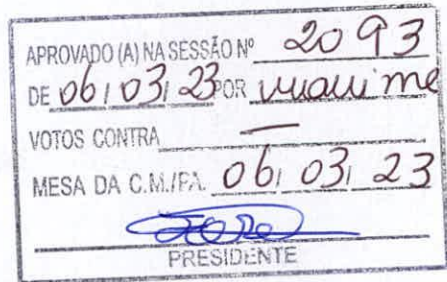 APROVADO (A) NA SESSÃO Nº 2093
DE 06/03/23 POR unanime
VOTOS CONTRA —
MESA DA C.M./PA. 06/03/23
PRESIDENTE